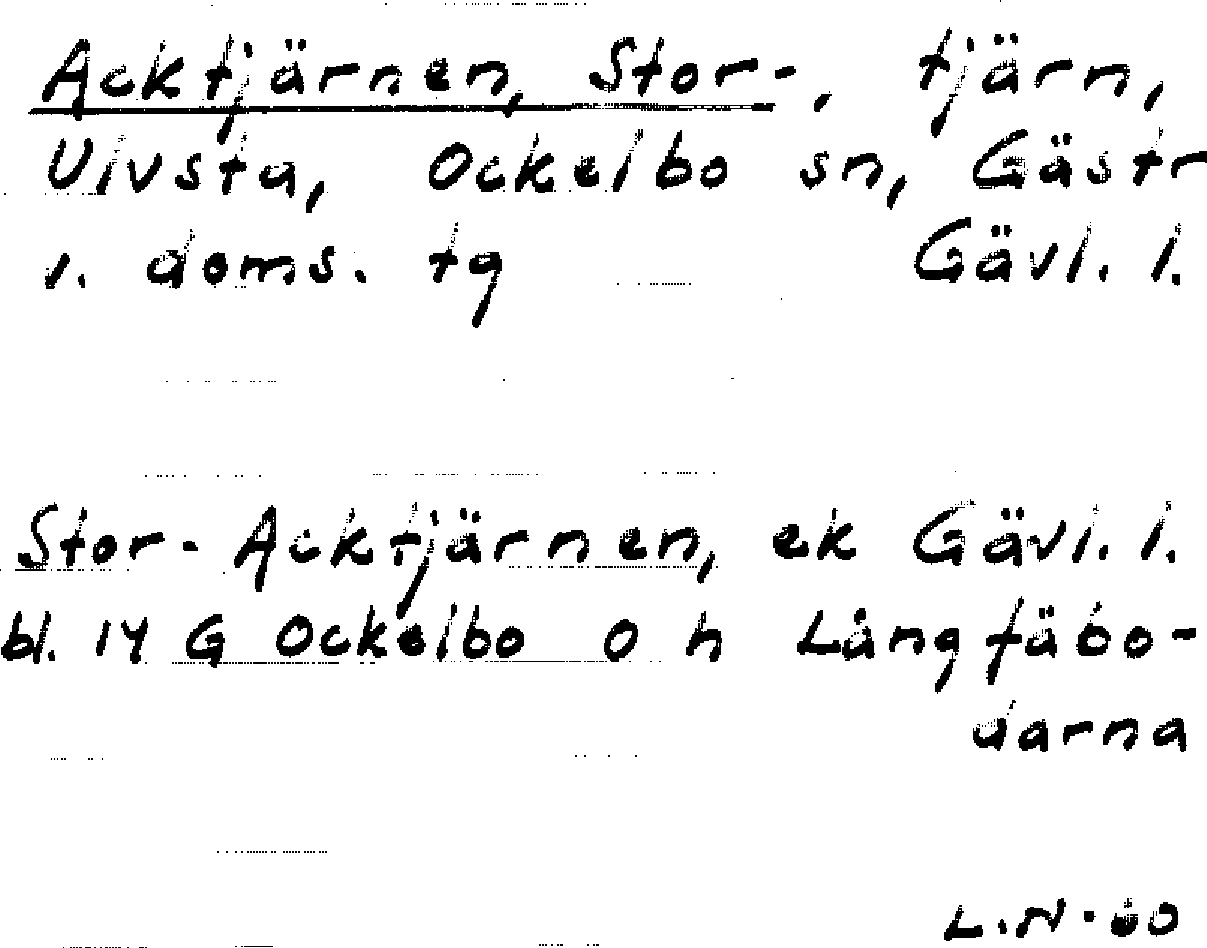 Acktjärnen, Stor-, tjärn,
Ulvsta, Ockelbo sn, Gästr
v. doms. tg Gävl. l.
Stor-Acktjärnen, ek Gävl. l.
bl. 14 G Ockelbo O h Långfäbo-
darna
L.N-60